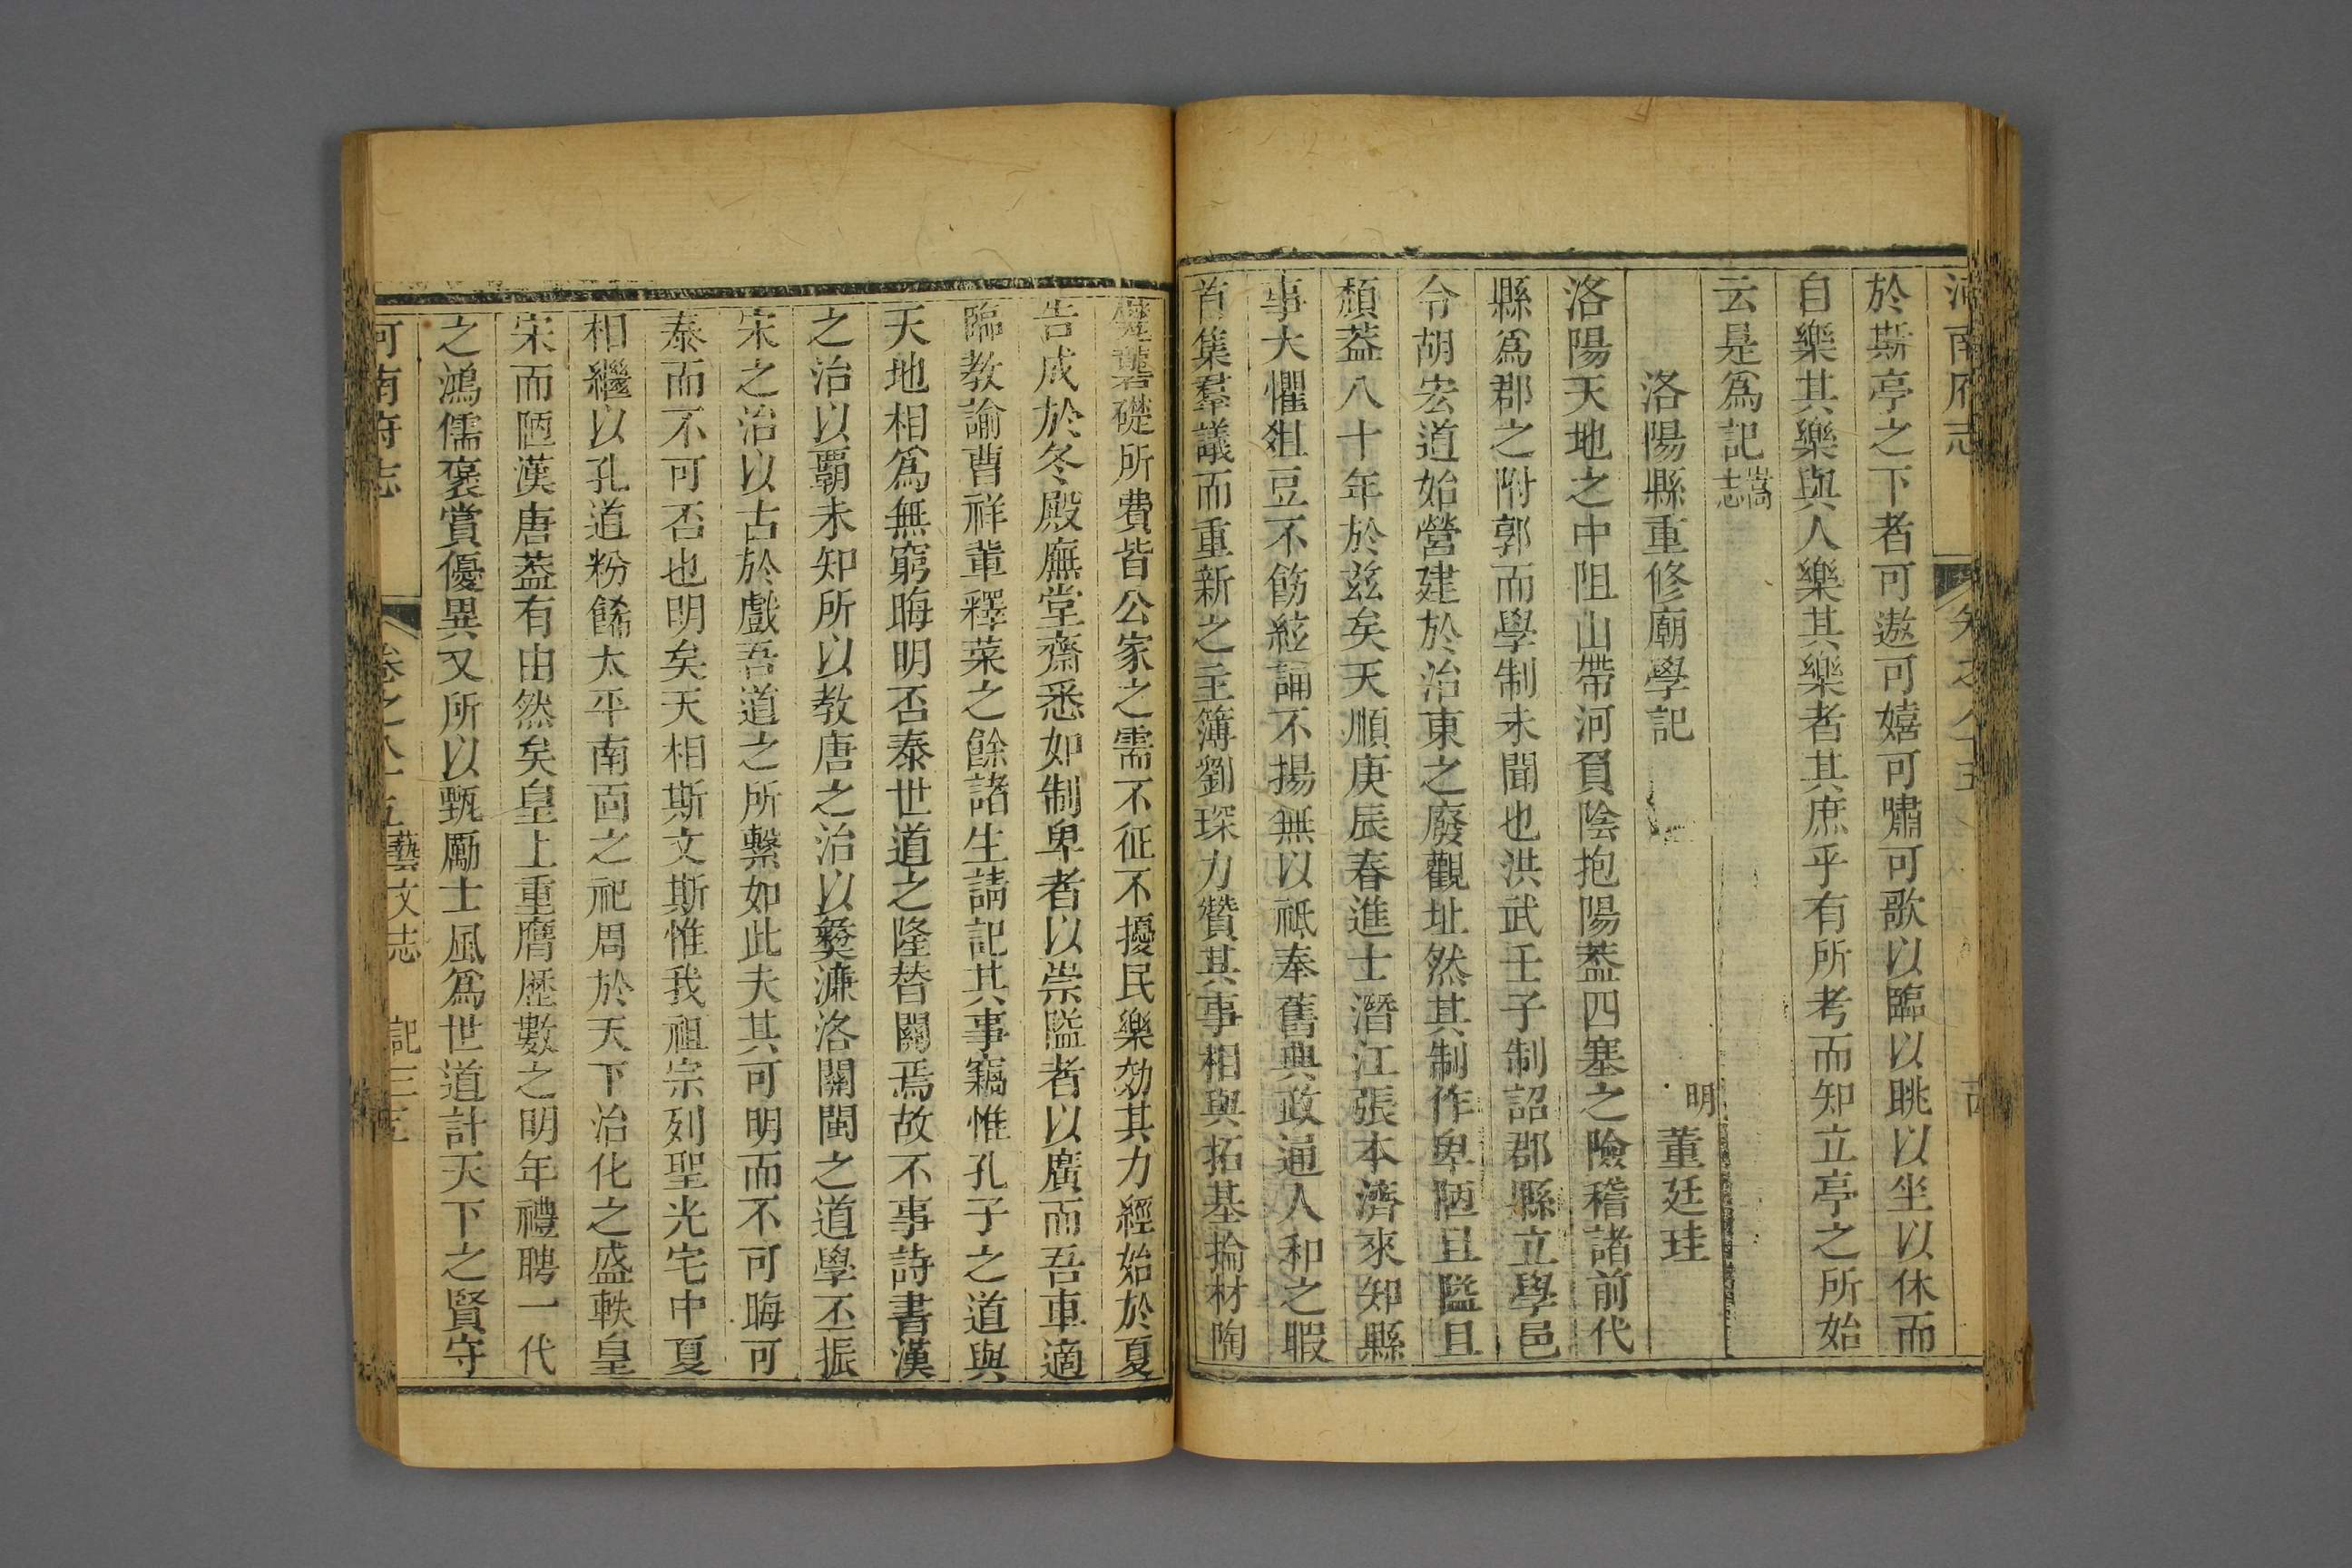 河南府志 卷之八十五
於斯亭之下者可遨可嬉可嘯可歌以臨以眺以坐以休而
自樂其樂與人樂其樂者其庶乎有所考而知立亭之所始
云是爲記嵩志
洛陽縣重修廟學記
明董廷珪
洛陽天地之中阻山帶河負陰抱陽葢四塞之險稽諸前代
縣爲郡之附郭而學制未聞也洪武壬子制詔郡縣立學邑
令胡宏道始營建於治東之廢觀址然其制作卑陋且隘且
頹葢八十年於兹矣天順庚辰春進士潛江張本濟來知縣
事大懼俎豆不飭絃誦不揚無以祗奉舊典政通人和之暇
首集羣議而重新之主簿劉琛力贊其事相與拓基掄材陶
甓礱礎所費皆公家之需不征不擾民樂効其力經始於夏
告成於冬殿廡堂齋悉如制卑者以崇隘者以廣而吾車適
臨教諭曹祥輩釋菜之餘諸生請記其事竊惟孔子之道與
天地相爲無窮晦明否泰世道之隆替關焉故不事詩書漢
之治以覇未知所以教唐之治以彝濂洛關閩之道學丕振
宋之治以古於戲吾道之所繫如此夫其可明而不可晦可
泰而不可否也明矣天相斯文斯惟我祖宗列聖光宅中夏
相繼以孔道粉餙太平南面之祀周於天下治化之盛軼皇
宋而陋漢唐葢有由然矣皇上重膺歷數之明年禮聘一代
之鴻儒褒賞優異又所以甄勵士風爲世道計天下之賢守
河南府志 卷之八十五 藝文志 記三